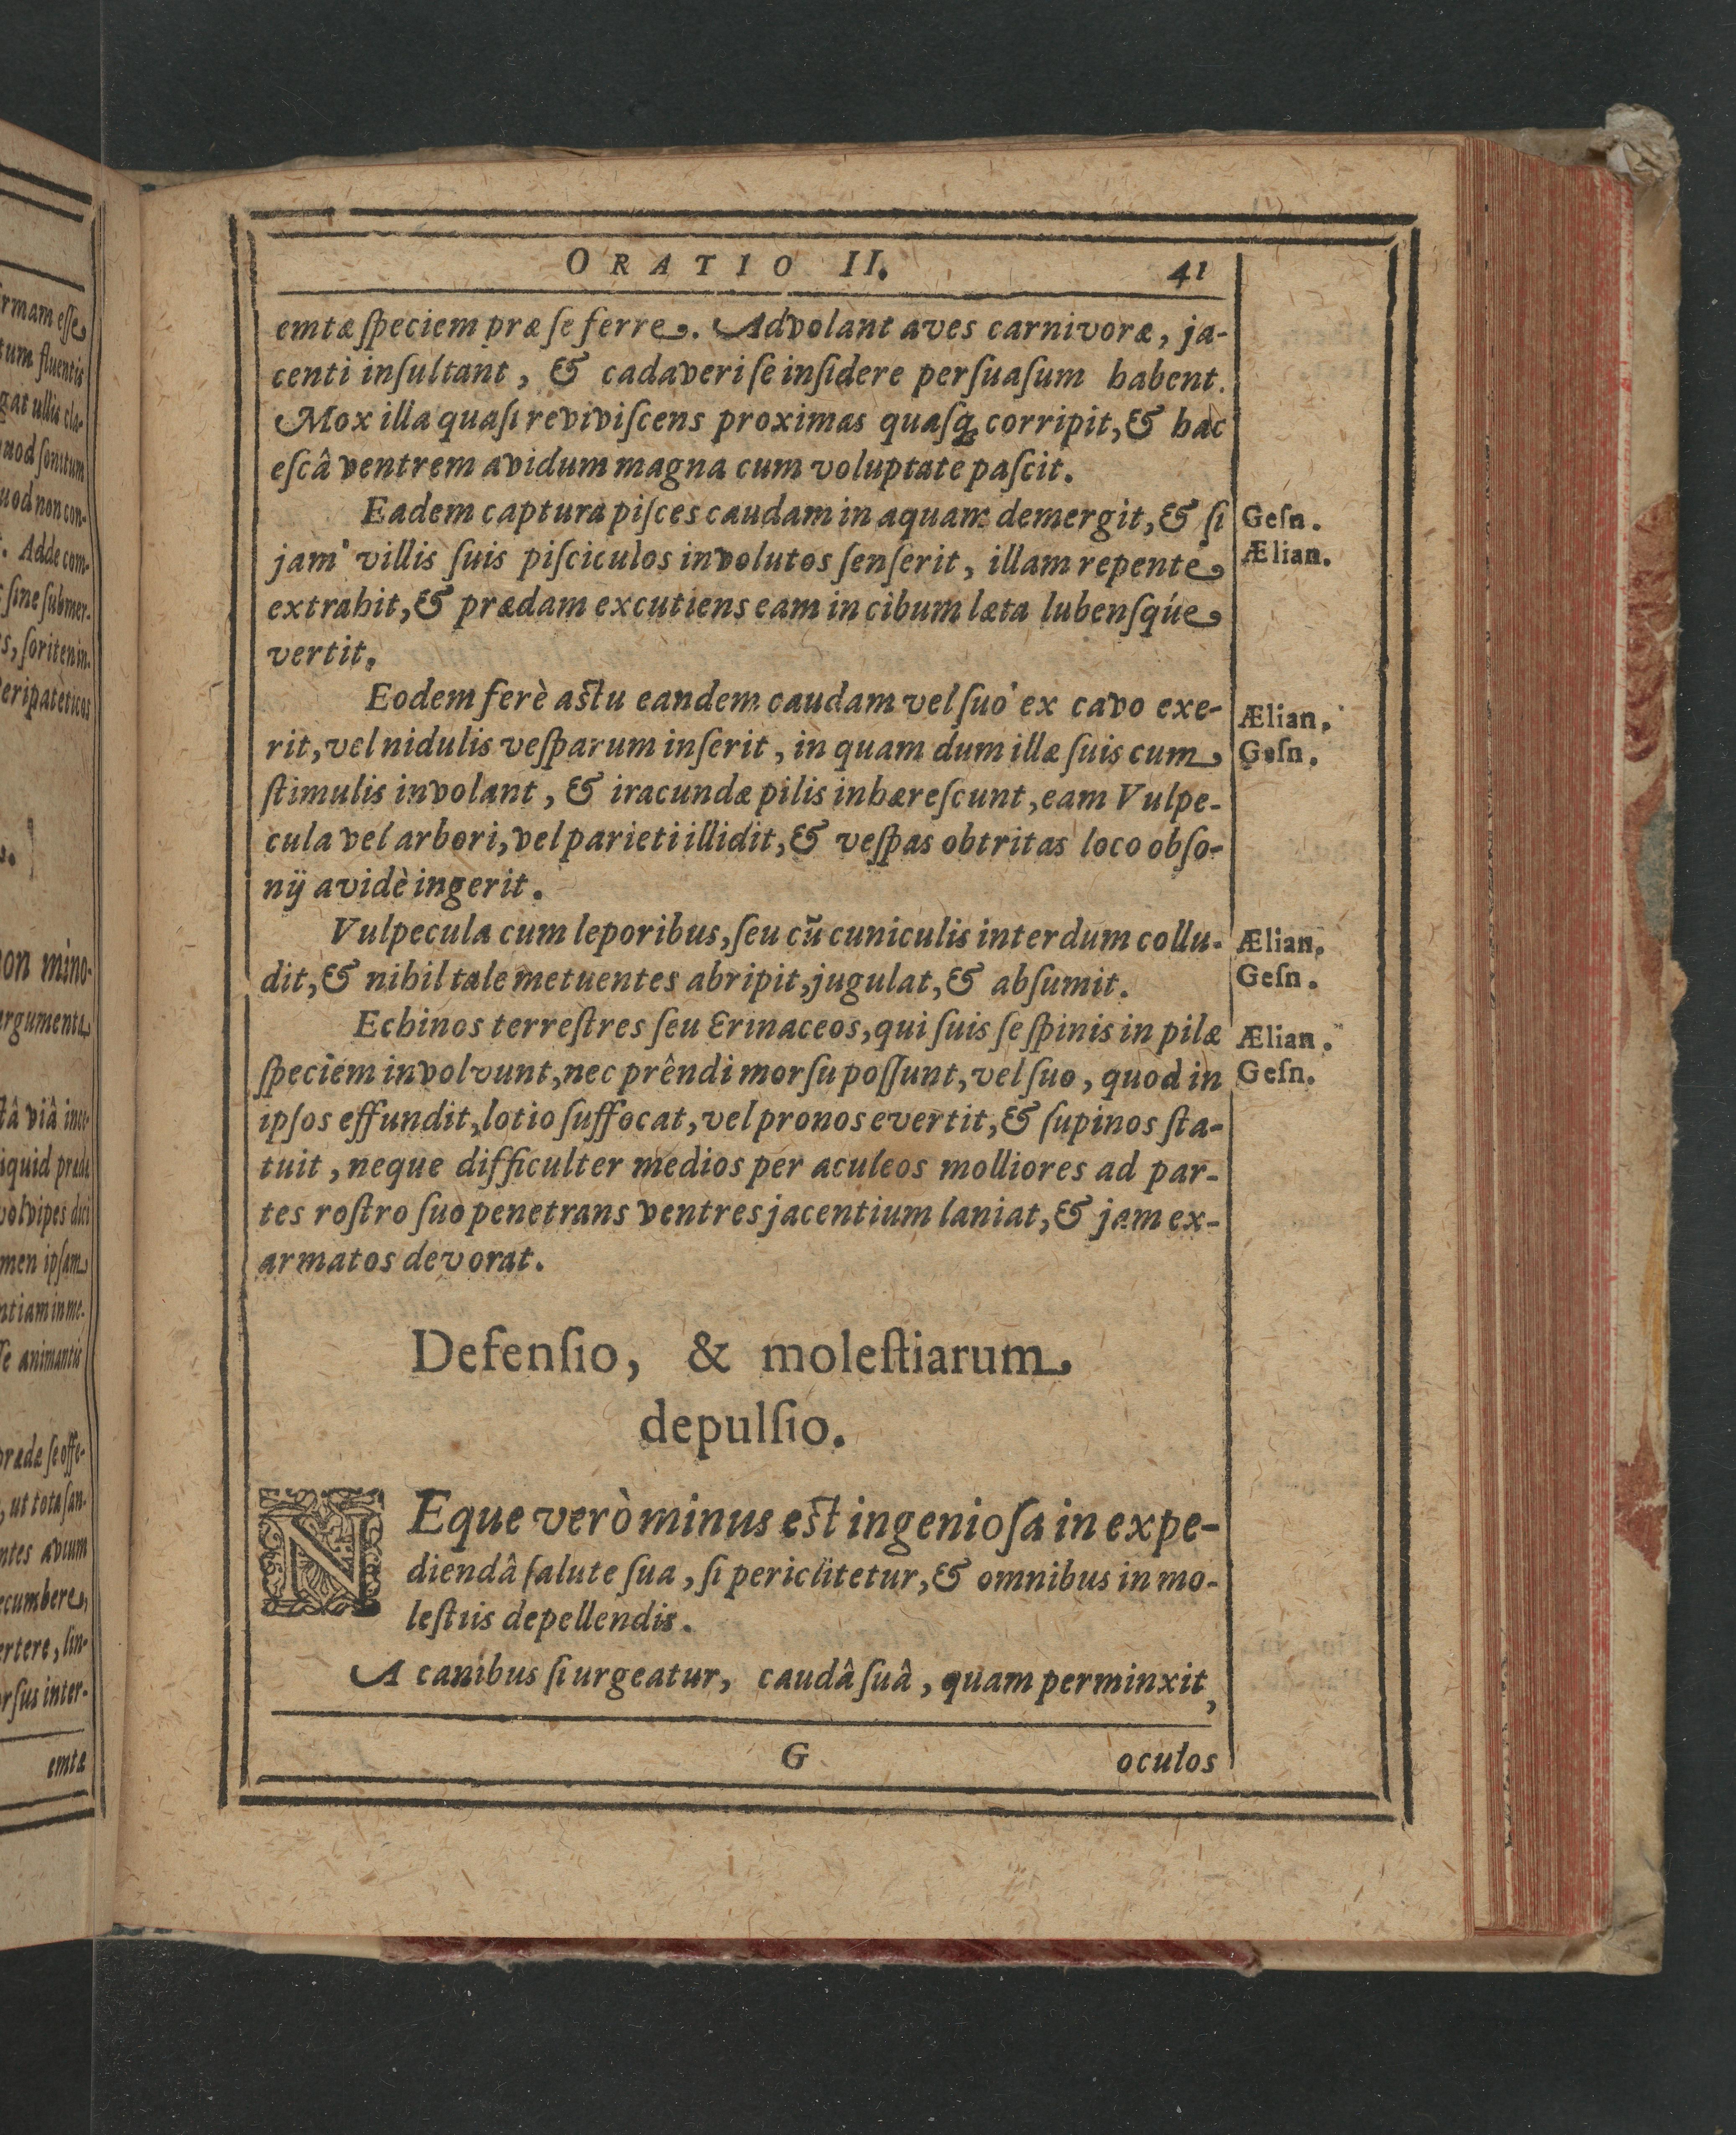 ORATIO II. 41
emtæ ſpeciem præ ſe ferre. Advolant aves carnivoræ, ja-
centi inſultant, & cadaveri ſe inſidere perſuaſum habent.
Mox illa quaſi reviviſcens proximas quaſq; corripit, & hac
eſcâ ventrem avidum magna cum voluptate paſcit.
Eadem captura piſces caudam in aquam demergit, & ſi
Geſn.
jam villis ſuis piſciculos involutos ſenſerit, illam repente
Ælian.
extrahit, & prædam excutiens eam in cibum læta lubenſqúe
vertit.
Eodem ferè aſtu eandem caudam vel ſuo ex cavo exe-
Ælian.
rit, vel nidulis veſparum inſerit, in quam dum illæ ſuis cum
Geſn.
ſtimulis involant, & iracundæ pilis inhæreſcunt, eam Vulpe-
cula vel arbori, vel parieti illidit, & veſpas obtritas loco obſo-
nij avidè ingerit.
Vulpecula cum leporibus, ſeu cũ cuniculis interdum collu-
Ælian.
dit, & nihil tale metuentes abripit, jugulat, & abſumit.
Geſn.
Echinos terreſtres ſeu Erinaceos, qui ſuis ſe ſpinis in pilæ
Ælian.
ſpeciem involvunt, nec prêndi morſu poſſunt, vel ſuo, quod in
Geſn.
ipſos effundit, lotio ſuffocat, vel pronos evertit, & ſupinos ſta-
tuit, neque difficulter medios per aculeos molliores ad par-
tes roſtro ſuo penetrans ventres jacentium laniat, & jam ex-
armatos devorat.
Defenſio, & moleſtiarum
depulſio.
NEque verò minus eſt ingenioſa in expe-
diendâ ſalute ſua, ſi periclitetur, & omnibus in mo-
leſtiis depellendis.
A canibus ſi urgeatur, caudâ ſuâ, quam perminxit,
G oculos